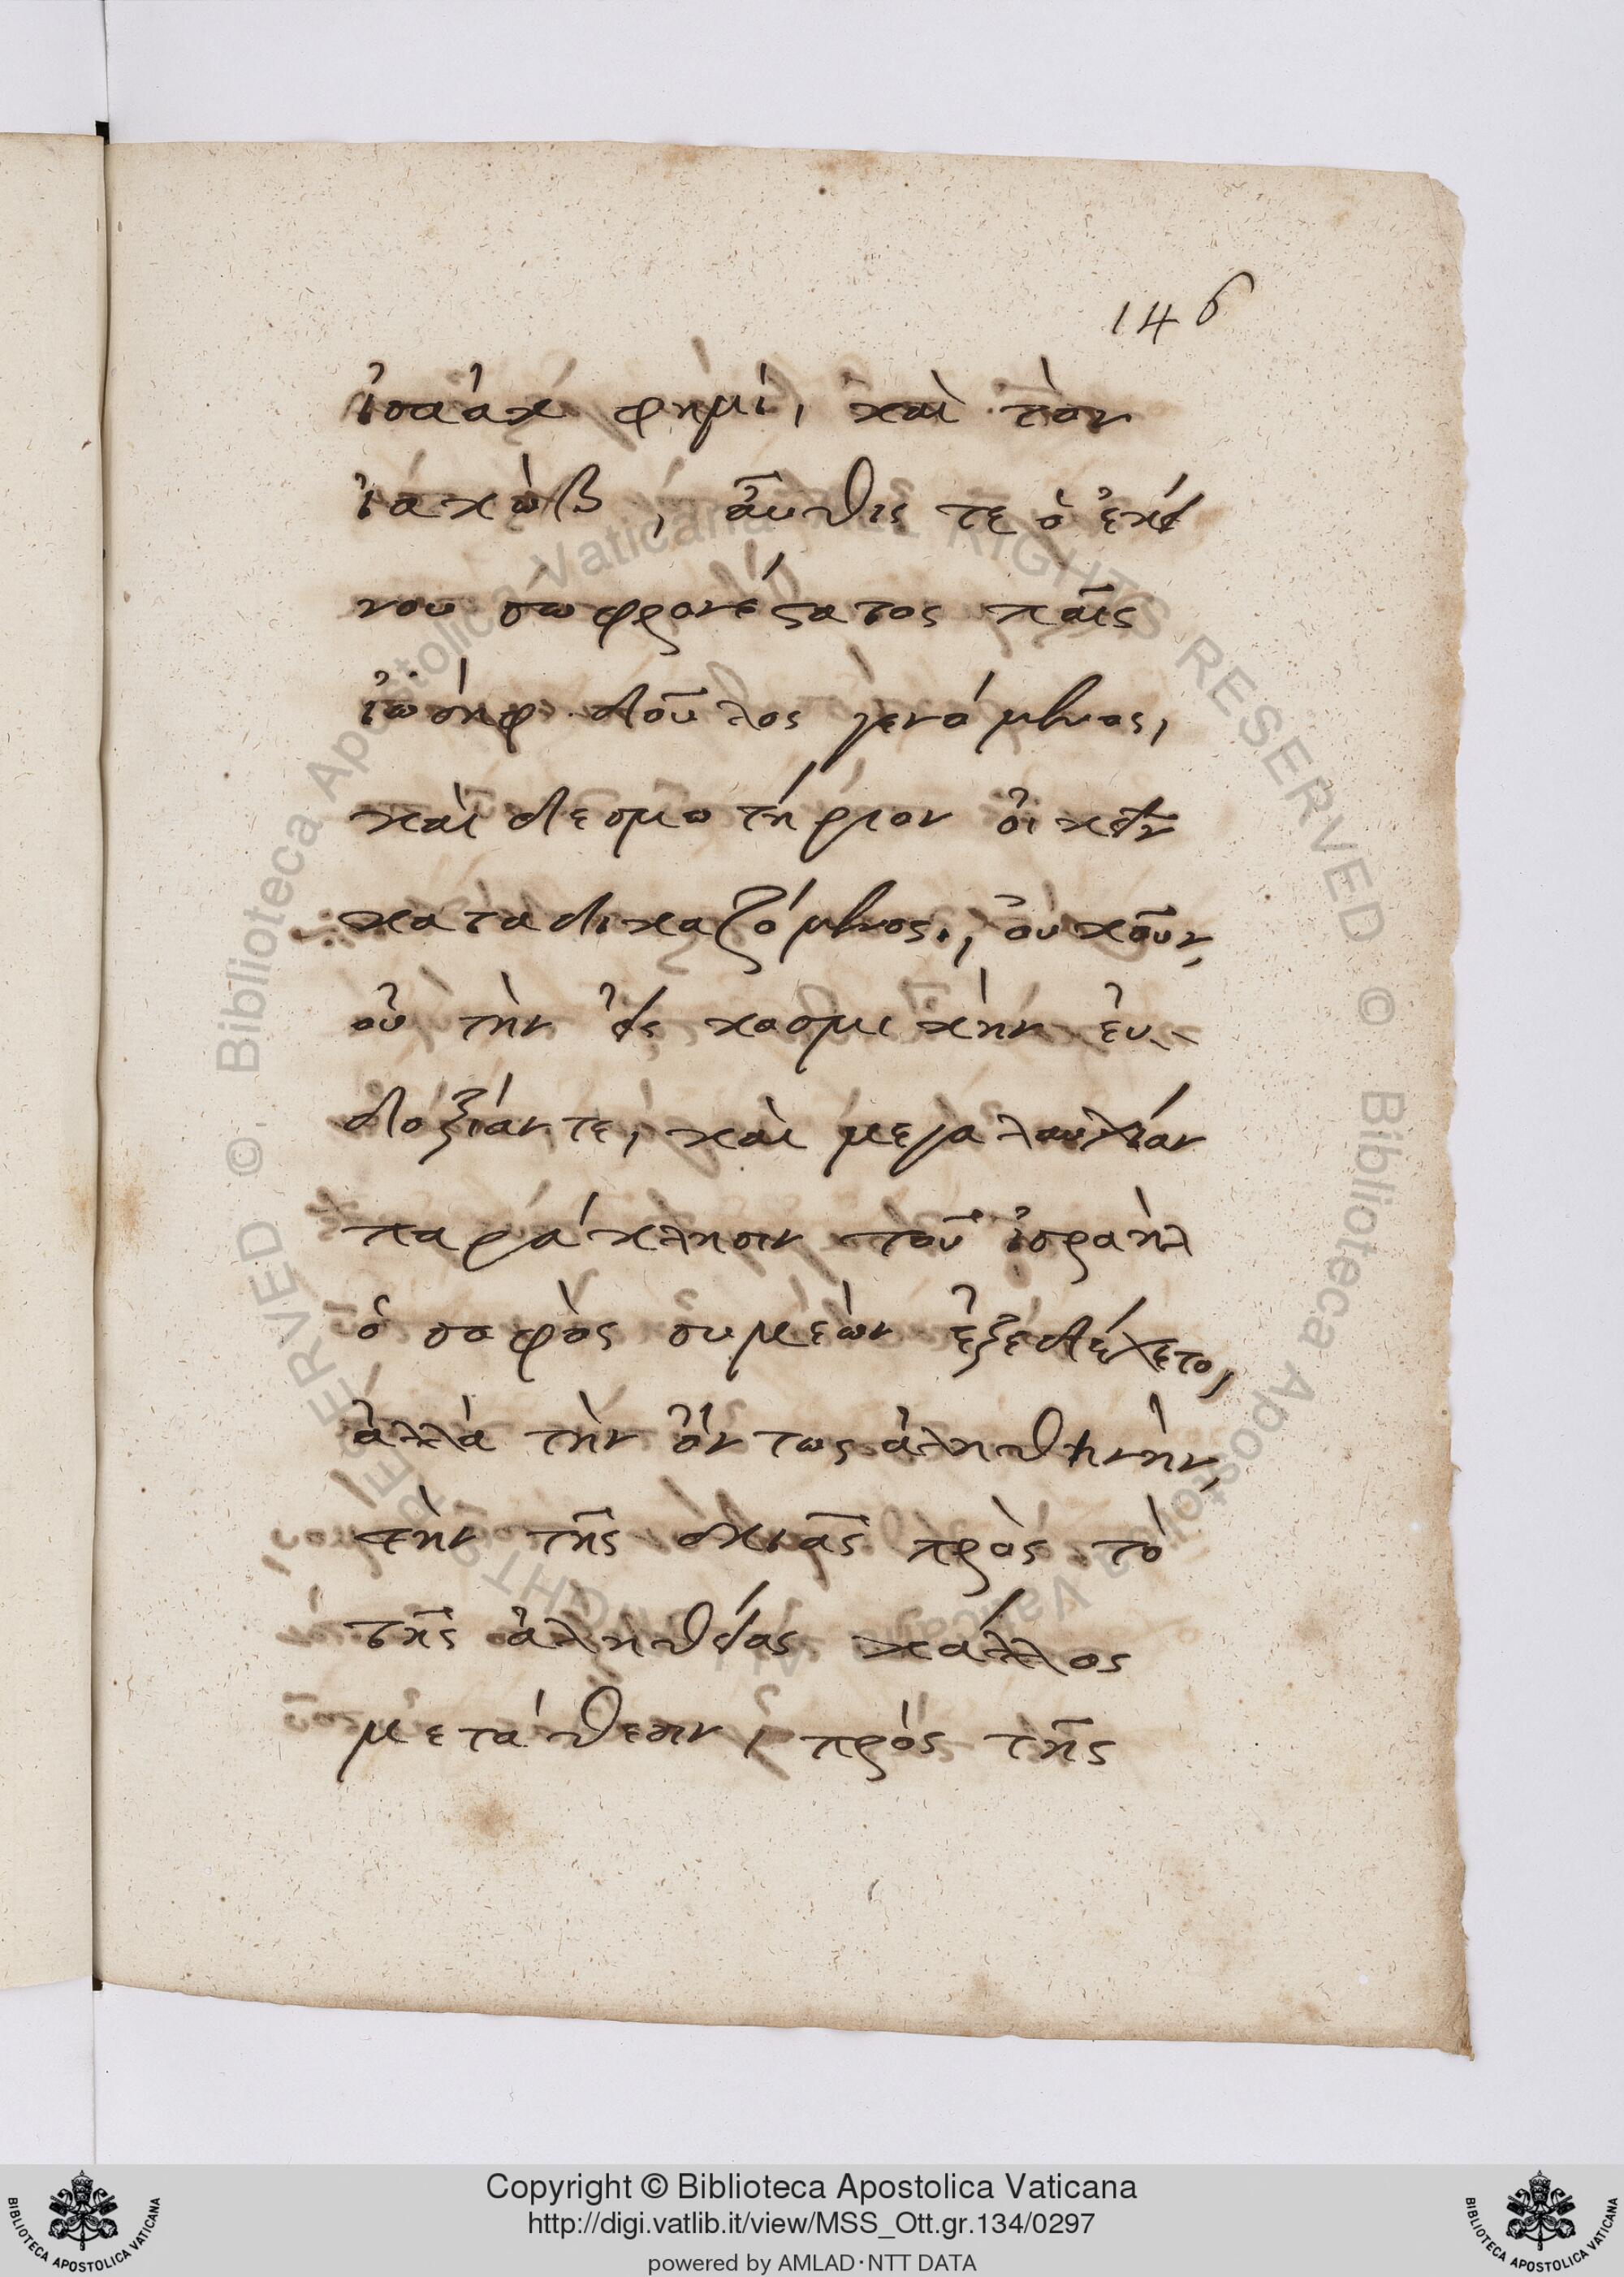 146
ἰσαάκ φημὶ, καὶ τὸν
ἰακὼβ, αὖθις τε ὁ ἐκεί
νου σωφρονέστατος παῖς
ἰωσὴφ δοῦλος γενόμενος,
καὶ δεσμωτήριον οἰκεῖν
καταδικαζόμενος., οὐκοῦν,
οὐ τὴν εἰς κοσμικὴν εὐ-
δοξίαν τε, καὶ μεγαλαυχίαν
παράκλησιν τοῦ ἰσραὴλ
ὁ σοφὸς συμεὼν ἐξεδέχετο,
ἀλλὰ τὴν ὄντως ἀληθηνὴν,
τὴν τῆς σκιᾶς πρὸς τὸ
τῆς ἀληθείας κάλλος
μετάθεσιν, πρὸς τῆς
Copyright © Biblioteca Apostolica Vaticana
http://digi.vatlib.it/view/MSS_Ott.gr.134/0297
powered by AMLAD·NTT DATA
BIBLIOTECA APOSTOLICA VATICANA
BIBLIOTECA APOSTOLICA VATICANA
© Biblioteca Apostolica Vaticana ALL RIGHTS RESERVED
© Biblioteca Apostolica Vaticana ALL RIGHTS RESERVED